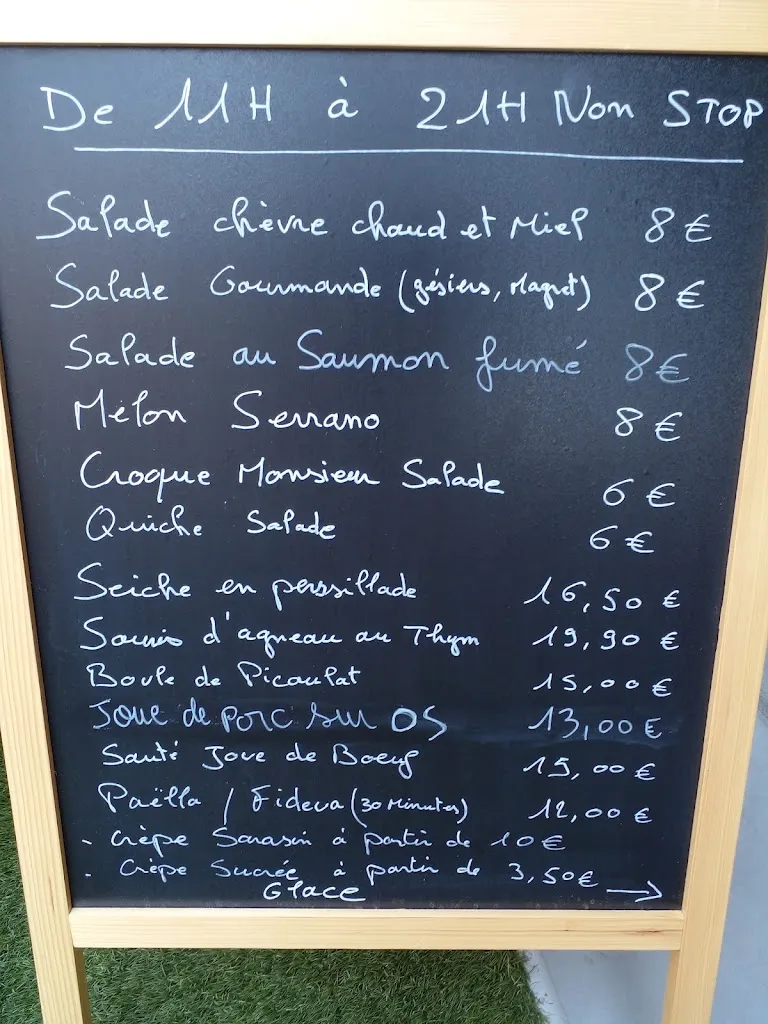 De 11H à 21H Non STOP
Salade chèvre chaud et Miel 8€
Salade Gourmande (gésiers, Magret) 8€
Salade au Saumon fumé 8€
Melon Serrano 8€
Croque Monsieur Salade 6€
Quiche Salade 6€
Seiche en perssillade 16,50€
Souris d'agneau au Thym 19,90€
Boule de Picaulat 15,00€
Joue de porc sur OS 13,00€
Sauté Joue de Boeuf 15,00€
Paëlla / Fideua (30 Minutes) 12,00€
- Crèpe Sarasin à partir de 10€
- Crèpe Sucrée à partir de 3,50€
Glace →